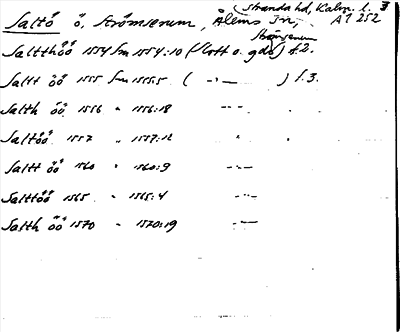 (Stranda hd, Kalm. l. 3
Saltö ö, Strömserum, Ålems sn, A1 252
Strömserum
Saltthöö 1554 Sm 1554:10 (slott o. gds) f. 2.
Saltt öö 1555 Sm 1555:5 ( -"- ) f. 3.
Salth öö 1556 " 1556:18 -"- .
Saltöö 1557 " 1557:12 " .
Saltt öö 1560 " 1560:9 -"-
Salttöö 1565 " 1565:4 -"-
Salth öö 1570 " 1570:19 -"-